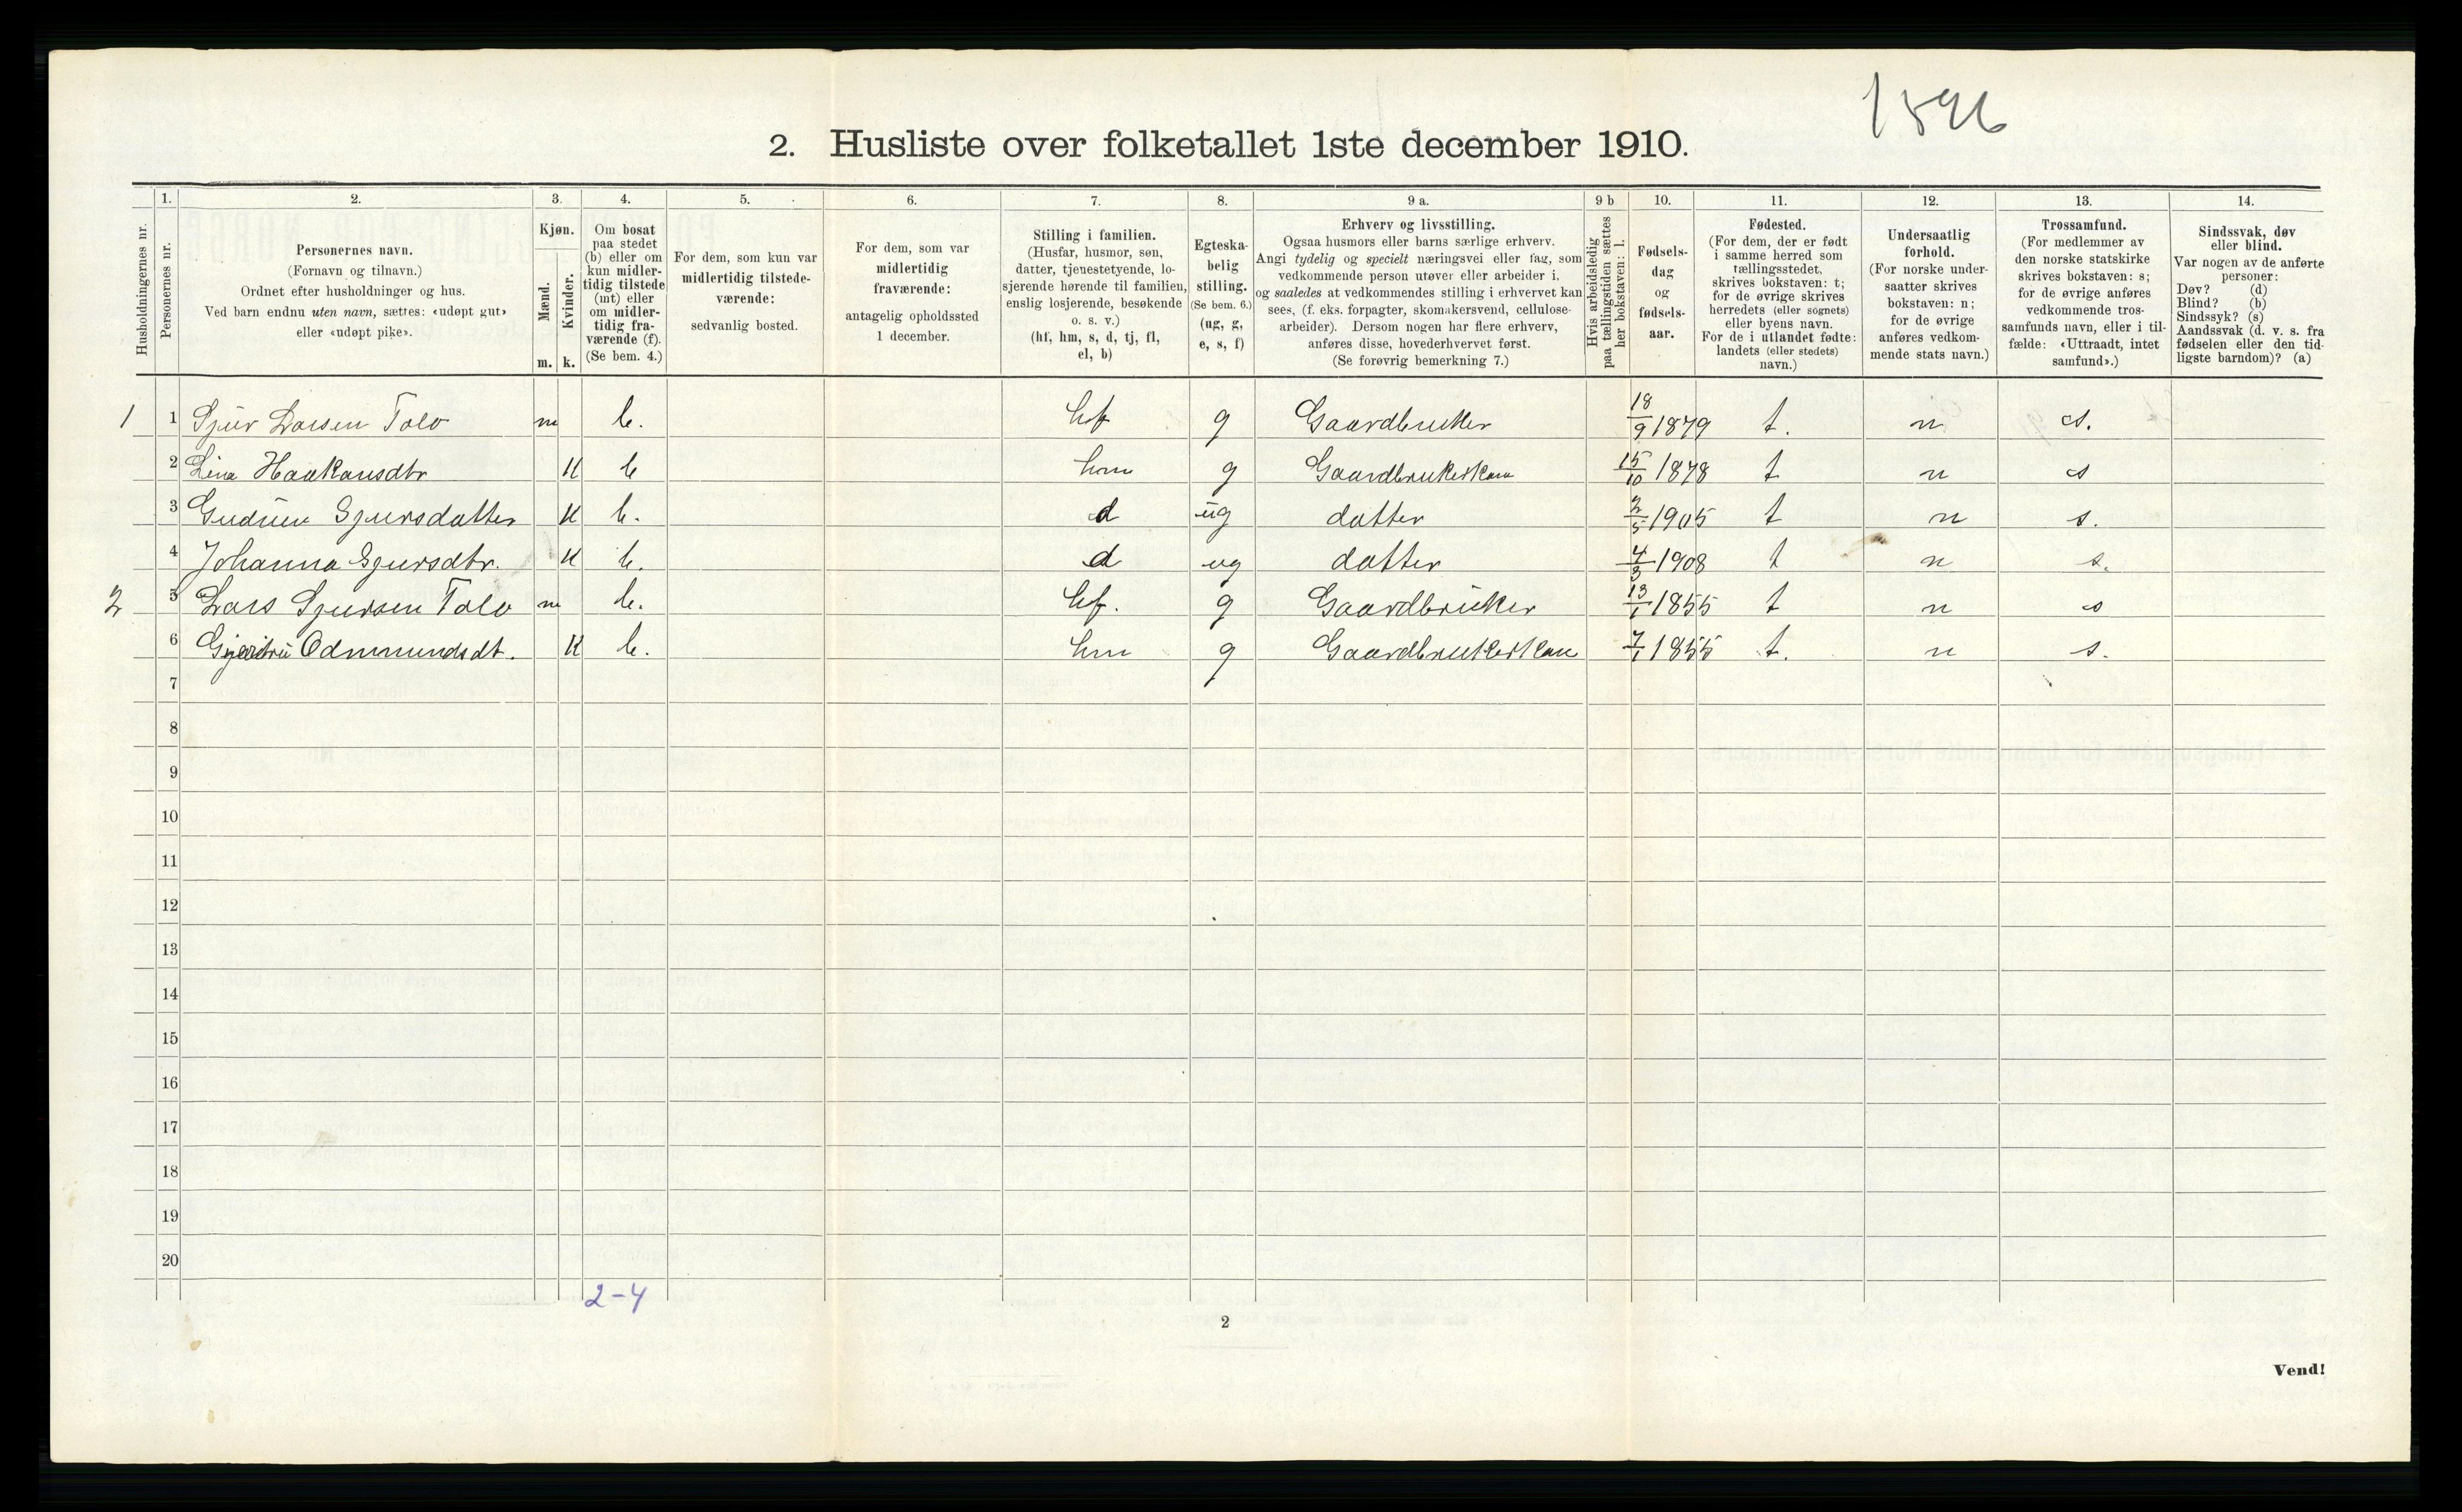 1596
2. Husliste over folketallet 1ste december 1910.
Husholdningernes nr.
1.
Personernes nr.
2.
Personernes navn.
(Fornavn og tilnavn.)
Ordnet efter husholdninger og hus.
Ved barn endnu uten navn, sættes: «udøpt gut»
eller «udøpt pike».
3.
Kjøn.
Mænd.
Kvinder.
m. k.
4.
Om bosat
paa stedet
(b) eller om
kun midler-
tidig tilstede
(mt) eller
om midler-
tidig fra-
værende (f).
(Se bem. 4.)
5.
For dem, som kun var
midlertidig tilstede-
værende:
sedvanlig bosted.
6.
For dem, som var
midlertidig
fraværende:
antagelig opholdssted
1 december.
7.
Stilling i familien.
(Husfar, husmor, søn,
datter, tjenestetyende, lo-
sjerende hørende til familien,
enslig losjerende, besøkende
o. s. v.)
(hf, hm, s, d, tj, fl,
el, b)
8.
Egteska-
belig
stilling.
(Se bem. 6.)
(ug, g,
e, s, f)
9 a.
Erhverv og livsstilling.
Ogsaa husmors eller barns særlige erhverv.
Angi tydelig og specielt næringsvei eller fag, som
vedkommende person utøver eller arbeider i,
og saaledes at vedkommendes stilling i erhvervet kan
sees, (f. eks. forpagter, skomakersvend, cellulose-
arbeider). Dersom nogen har flere erhverv,
anføres disse, hovederhvervet først.
(Se forøvrig bemerkning 7.)
9 b
Hvis arbeidsledig
paa tællingstiden sættes
her bokstaven: l.
10.
Fødsels-
dag
og
fødsels-
aar.
11.
Fødested.
(For dem, der er født
i samme herred som
tællingsstedet,
skrives bokstaven: t;
for de øvrige skrives
herredets (eller sognets)
eller byens navn.
For de i utlandet fødte:
landets (eller stedets)
navn.)
12.
Undersaatlig
forhold.
(For norske under-
saatter skrives
bokstaven: n;
for de øvrige
anføres vedkom-
mende stats navn.)
13.
Trossamfund.
(For medlemmer av
den norske statskirke
skrives bokstaven: s;
for de øvrige anføres
vedkommende tros-
samfunds navn, eller i til-
fælde: «Uttraadt, intet
samfund».)
14.
Sindssvak, døv
eller blind.
Var nogen av de anførte
personer:
Døv? (d)
Blind? (b)
Sindssyk? (s)
Aandssvak (d. v. s. fra
fødselen eller den tid-
ligste barndom)? (a)
1 1 Sjur Larsen Tolo m b. hf g Gaardbruker 18/9 1879 t. n s.
2 Lina Haakansdtr K b hm g Gaardbrukerkone 15/10 1878 t n s
3 Gudrun Sjursdatter K b. d ug datter 2/5 1905 t n s.
4 Johanna Sjursdtr. K b. d ug datter 4/3 1908 t n s.
2 5 Lars Sjursen Tolo m b. hf. g Gaardbruker 13/1 1855 t n s
6 Odmmundsdt. K b. hm g Gaardbrukerkone 7/1 1855 t. n s.
7
8
9
10
11
12
13
14
15
16
17
18
19
20
2-4
2
Vend!